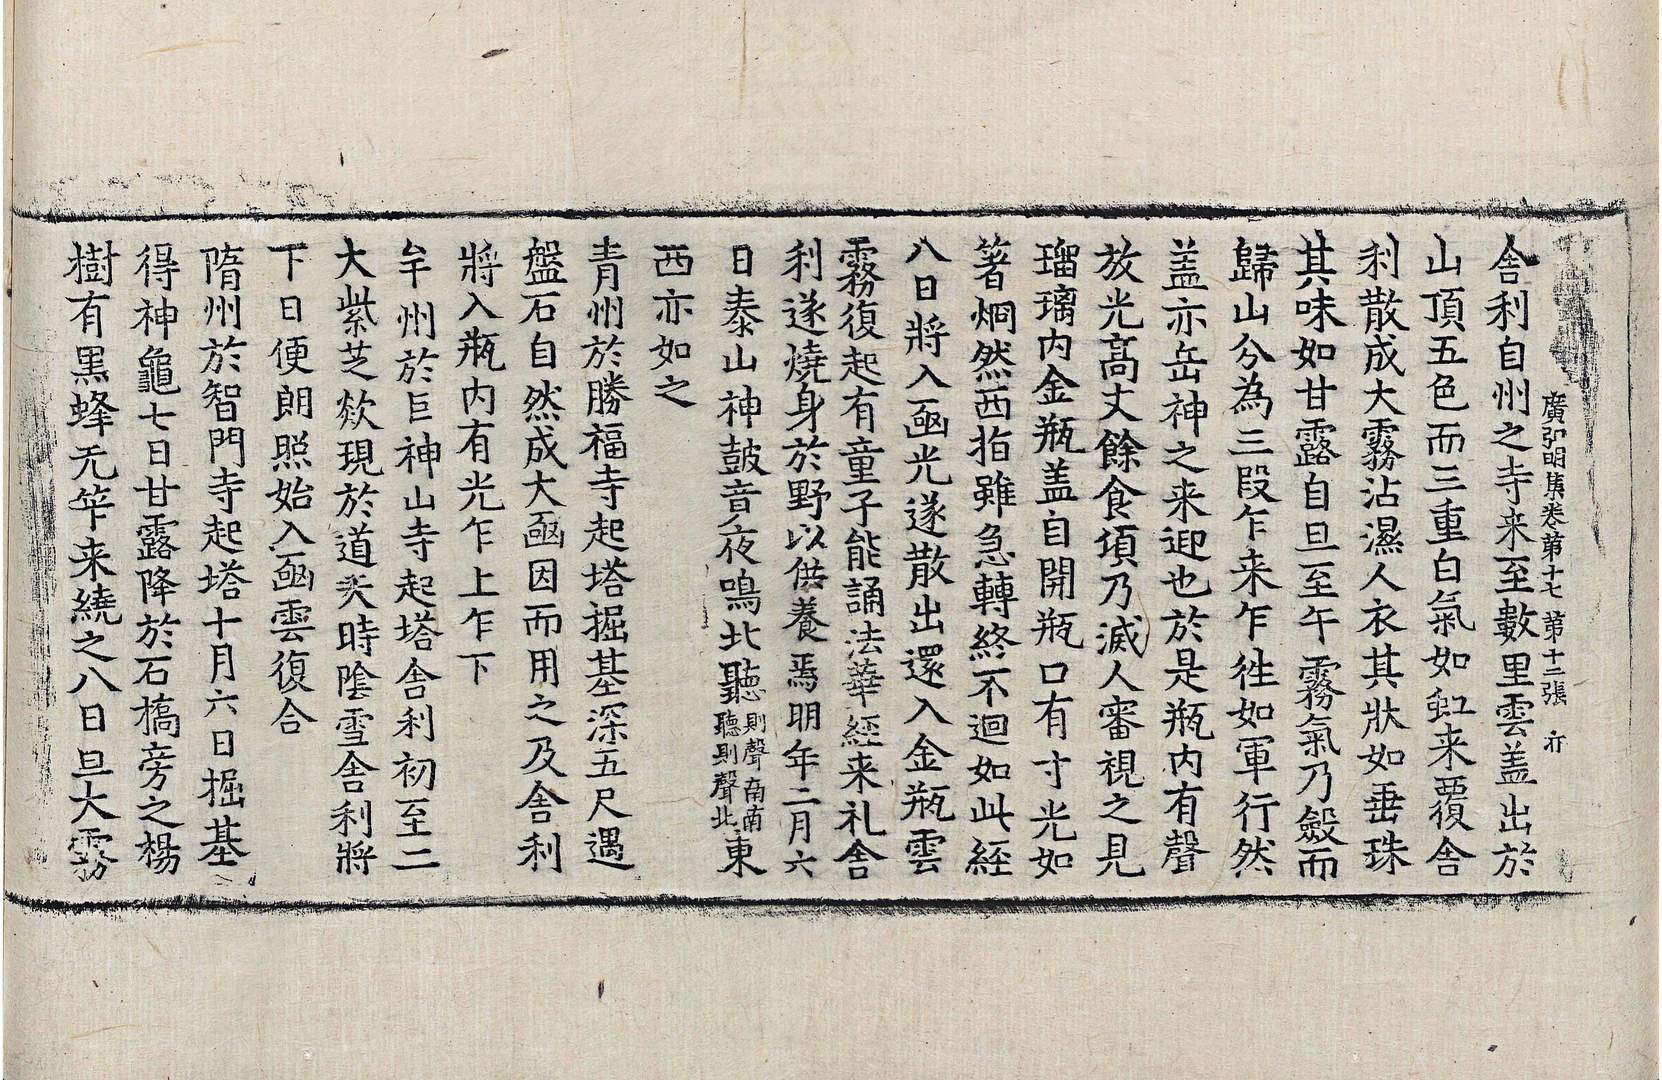 廣弘明集卷第十七 第十二張 亦
舍利自州之寺来至數里雲盖出於
山頂五色而三重白氣如虹来覆舍
利散成大霧沾濕人衣其狀如垂珠
其味如甘露自旦至午霧氣乃斂而
歸山分為三段乍来乍徃如軍行然
盖亦岳神之来迎也於是瓶内有聲
放光高丈餘食頃乃滅人審視之見
瑠璃内金瓶盖自開瓶口有寸光如
箸炯然西指雖急轉終不迴如此經
八日將入凾光遂散出還入金瓶雲
霧復起有童子能誦法華經来礼舍
利遂燒身於野以供養焉明年二月六
日泰山神鼓音夜鳴北聽則聲南南聽則聲北東
西亦如之
青州於勝福寺起塔掘基深五尺遇
盤石自然成大凾因而用之及舍利
將入瓶内有光乍上乍下
牟州於巨神山寺起塔舍利初至二
大紫芝欻現於道天時陰雪舍利將
下日便朗照始入凾雲復合
隋州於智門寺起塔十月六日掘基
得神龜七日甘露降於石橋旁之楊
樹有黑蜂无筭来繞之八日旦大霧